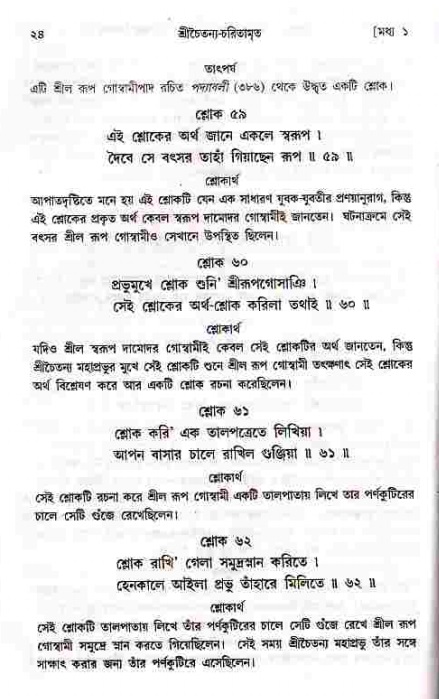 ২৪
শ্রীচৈতন্য-চরিতামৃত
[মধ্য ১
তাৎপর্য
এটি শ্রীল রূপ গোস্বামীপাদ রচিত পদ্যাবলী (৩৮৬) থেকে উদ্ধৃত একটি শ্লোক।
শ্লোক ৫৯
এই শ্লোকের অর্থ জানে একলে স্বরূপ ।
দৈবে সে বৎসর তাহাঁ গিয়াছেন রূপ ॥ ৫৯ ॥
শ্লোকার্থ
আপাতদৃষ্টিতে মনে হয় এই শ্লোকটি যেন এক সাধারণ যুবক-যুবতীর প্রণয়ানুরাগ, কিন্তু
এই শ্লোকের প্রকৃত অর্থ কেবল স্বরূপ দামোদর গোস্বামীই জানতেন। ঘটনাক্রমে সেই
বৎসর শ্রীল রূপ গোস্বামীও সেখানে উপস্থিত ছিলেন।
শ্লোক ৬০
প্রভুমুখে শ্লোক শুনি' শ্রীরূপগোসাঞি ।
সেই শ্লোকের অর্থ-শ্লোক করিলা তথাই ॥ ৬০ ॥
শ্লোকার্থ
যদিও শ্রীল স্বরূপ দামোদর গোস্বামীই কেবল সেই শ্লোকটির অর্থ জানতেন, কিন্তু
শ্রীচৈতন্য মহাপ্রভুর মুখে সেই শ্লোকটি শুনে শ্রীল রূপ গোস্বামী তৎক্ষণাৎ সেই শ্লোকের
অর্থ বিশ্লেষণ করে আর একটি শ্লোক রচনা করেছিলেন।
শ্লোক ৬১
শ্লোক করি' এক তালপত্রেতে লিখিয়া ।
আপন বাসার চালে রাখিল গুঞ্জিয়া ॥ ৬১ ॥
শ্লোকার্থ
সেই শ্লোকটি রচনা করে শ্রীল রূপ গোস্বামী একটি তালপাতায় লিখে তার পর্ণকুটিরের
চালে সেটি গুঁজে রেখেছিলেন।
শ্লোক ৬২
শ্লোক রাখি' গেলা সমুদ্রস্নান করিতে ।
হেনকালে আইলা প্রভু তাঁহারে মিলিতে ॥ ৬২ ॥
শ্লোকার্থ
সেই শ্লোকটি তালপাতায় লিখে তাঁর পর্ণকুটিরের চালে সেটি গুঁজে রেখে শ্রীল রূপ
গোস্বামী সমুদ্রে স্নান করতে গিয়েছিলেন। সেই সময় শ্রীচৈতন্য মহাপ্রভু তাঁর সঙ্গে
সাক্ষাৎ করার জন্য তাঁর পর্ণকুটিরে এসেছিলেন।